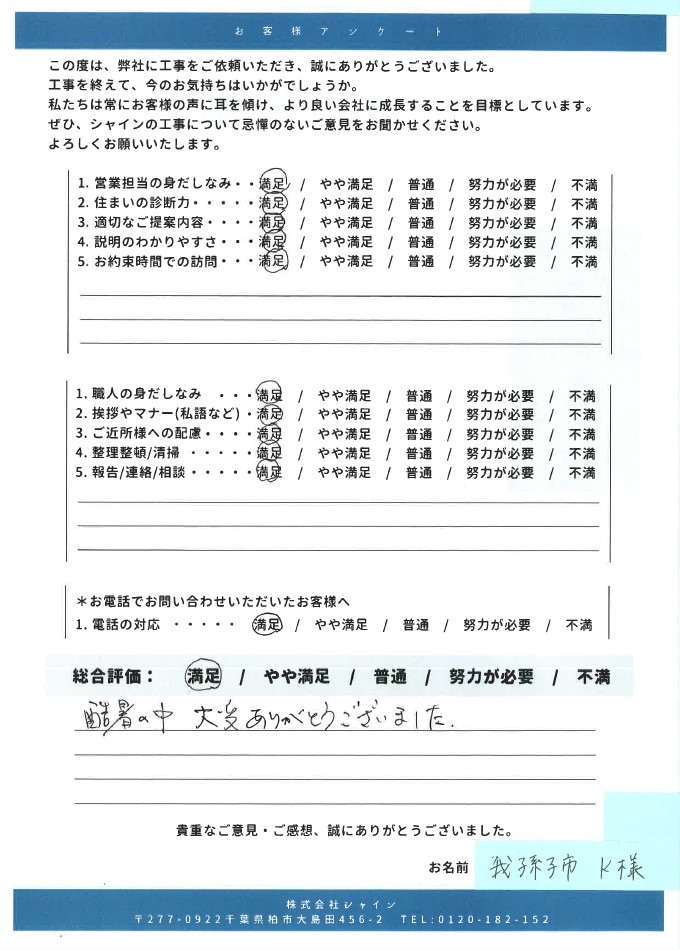 お客様アンケート
この度は、弊社に工事をご依頼いただき、誠にありがとうございました。
工事を終えて、今のお気持ちはいかがでしょうか。
私たちは常にお客様の声に耳を傾け、より良い会社に成長することを目標としています。
ぜひ、シャインの工事について忌憚のないご意見をお聞かせください。
よろしくお願いいたします。
1. 営業担当の身だしなみ・・満足 / やや満足 / 普通 / 努力が必要 / 不満
2. 住まいの診断力・・・・・満足 / やや満足 / 普通 / 努力が必要 / 不満
3. 適切なご提案内容・・・・満足 / やや満足 / 普通 / 努力が必要 / 不満
4. 説明のわかりやすさ・・・満足 / やや満足 / 普通 / 努力が必要 / 不満
5. お約束時間での訪問・・・満足 / やや満足 / 普通 / 努力が必要 / 不満
1. 職人の身だしなみ ・・・満足 / やや満足 / 普通 / 努力が必要 / 不満
2. 挨拶やマナー(私語など)・満足 / やや満足 / 普通 / 努力が必要 / 不満
3. ご近所様への配慮・・・・満足 / やや満足 / 普通 / 努力が必要 / 不満
4. 整理整頓/清掃 ・・・・・満足 / やや満足 / 普通 / 努力が必要 / 不満
5. 報告/連絡/相談・・・・・満足 / やや満足 / 普通 / 努力が必要 / 不満
＊お電話でお問い合わせいただいたお客様へ
1. 電話の対応 ・・・・・ 満足 / やや満足 / 普通 / 努力が必要 / 不満
総合評価： 満足 / やや満足 / 普通 / 努力が必要 / 不満
酷暑の中 大変ありがとうございました.
貴重なご意見・ご感想、誠にありがとうございました。
お名前 我孫子市 K様
株式会社シャイン
〒277-0922千葉県柏市大島田456-2 TEL:0120-182-152